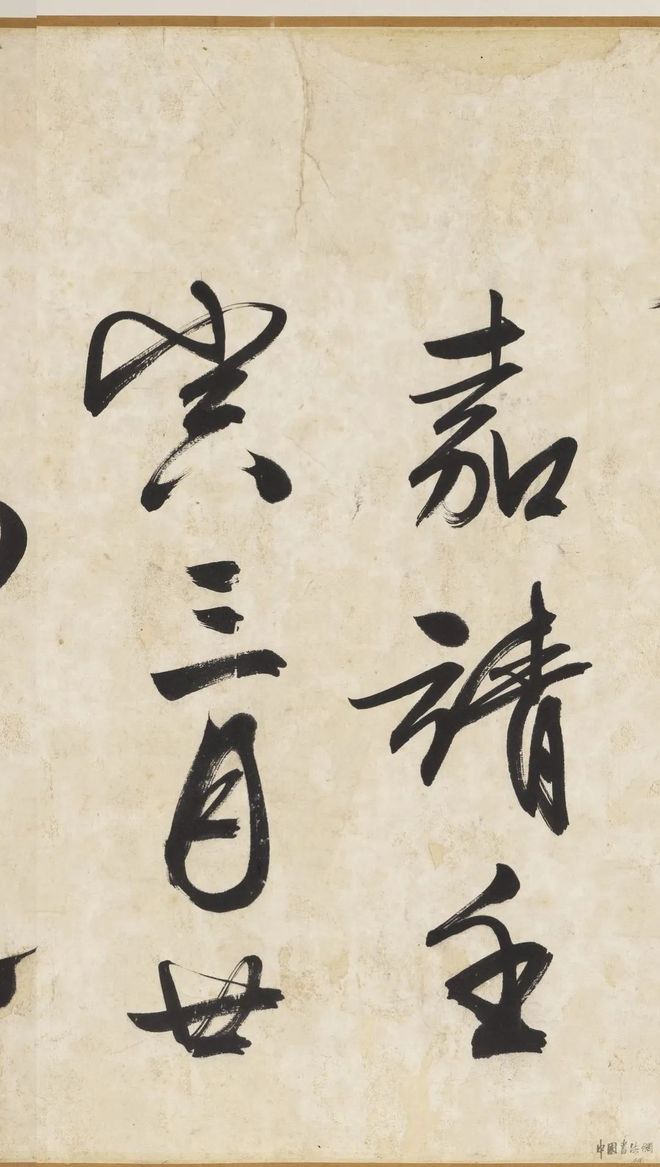 嘉靖壬
寅三月廿
中國書法網